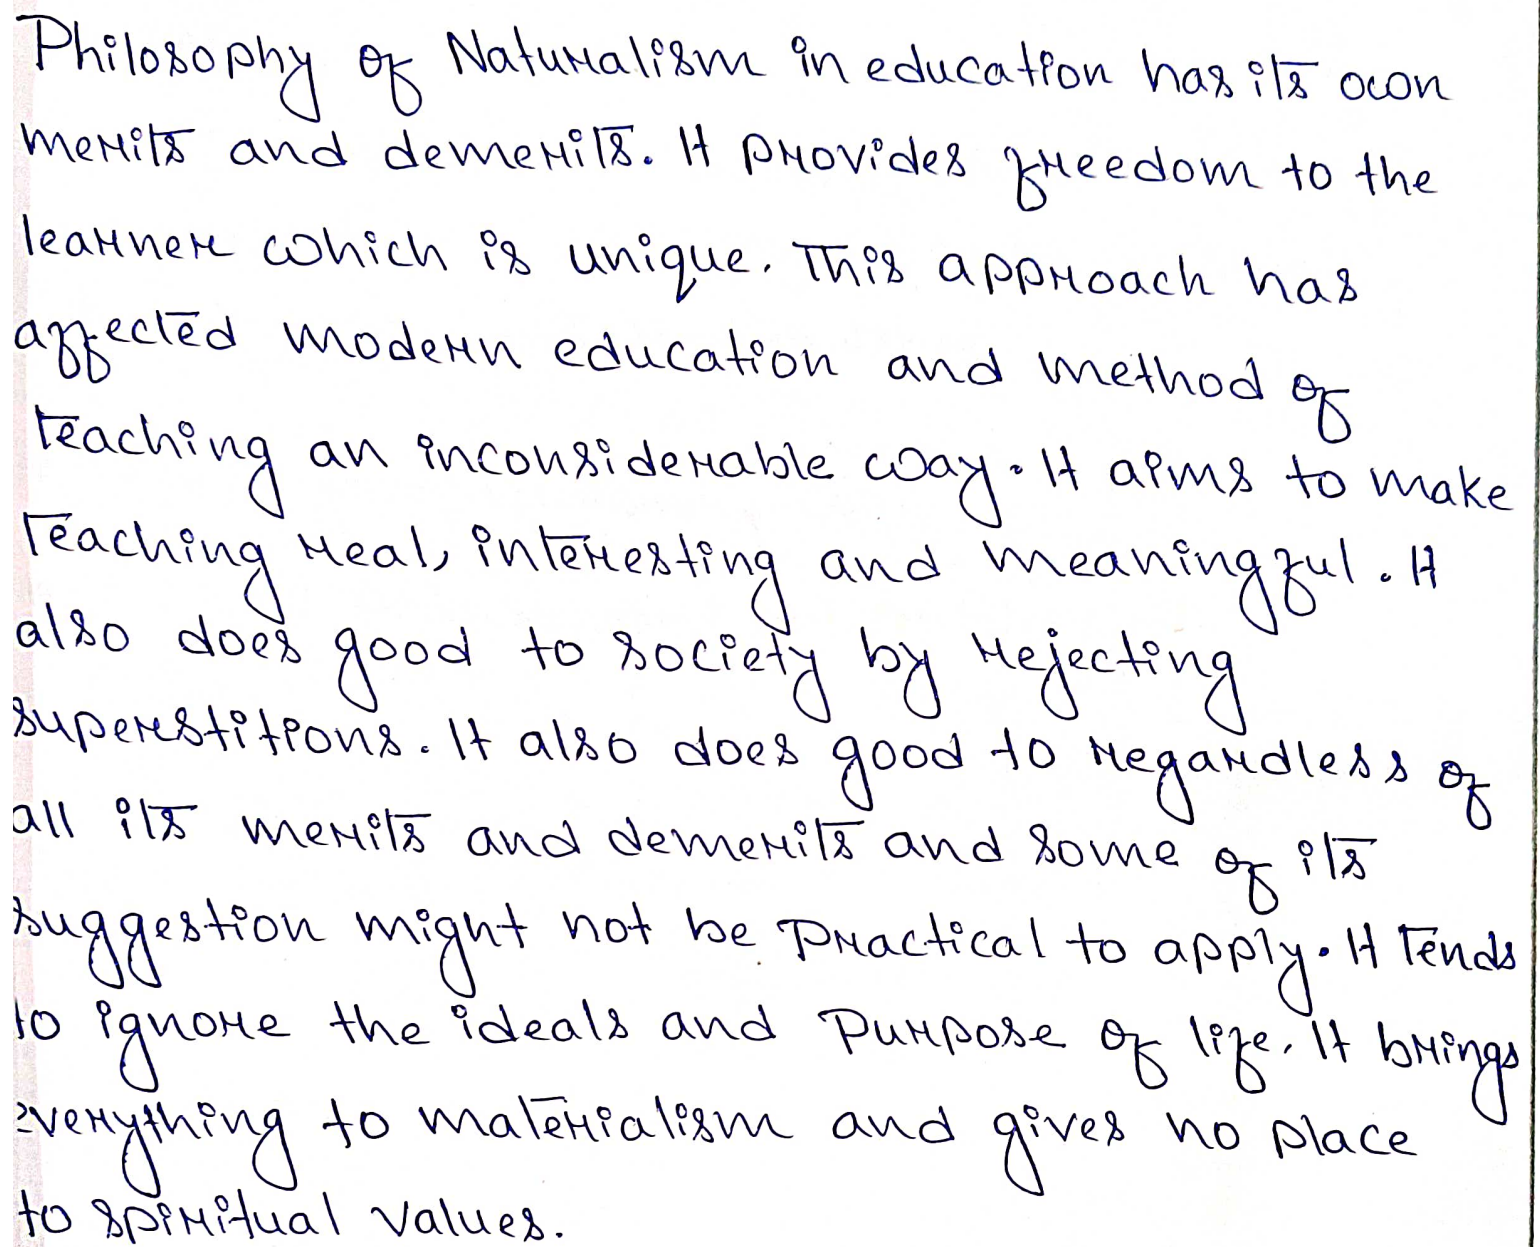 Philosophy of Naturalism in education has its own
merits and demerits. It provides freedom to the
learner which is unique. This approach has
affected modern education and method of
teaching an inconsiderable way. It aims to make
Teaching real, interesting and meaningful. It
also does good to society by rejecting
superstitions. It also does good to regardless of
all its merits and demerits and some of its
suggestion might not be practical to apply. It tends
to ignore the ideals and purpose of life. It brings
everything to materialism and gives no place
to spiritual values.